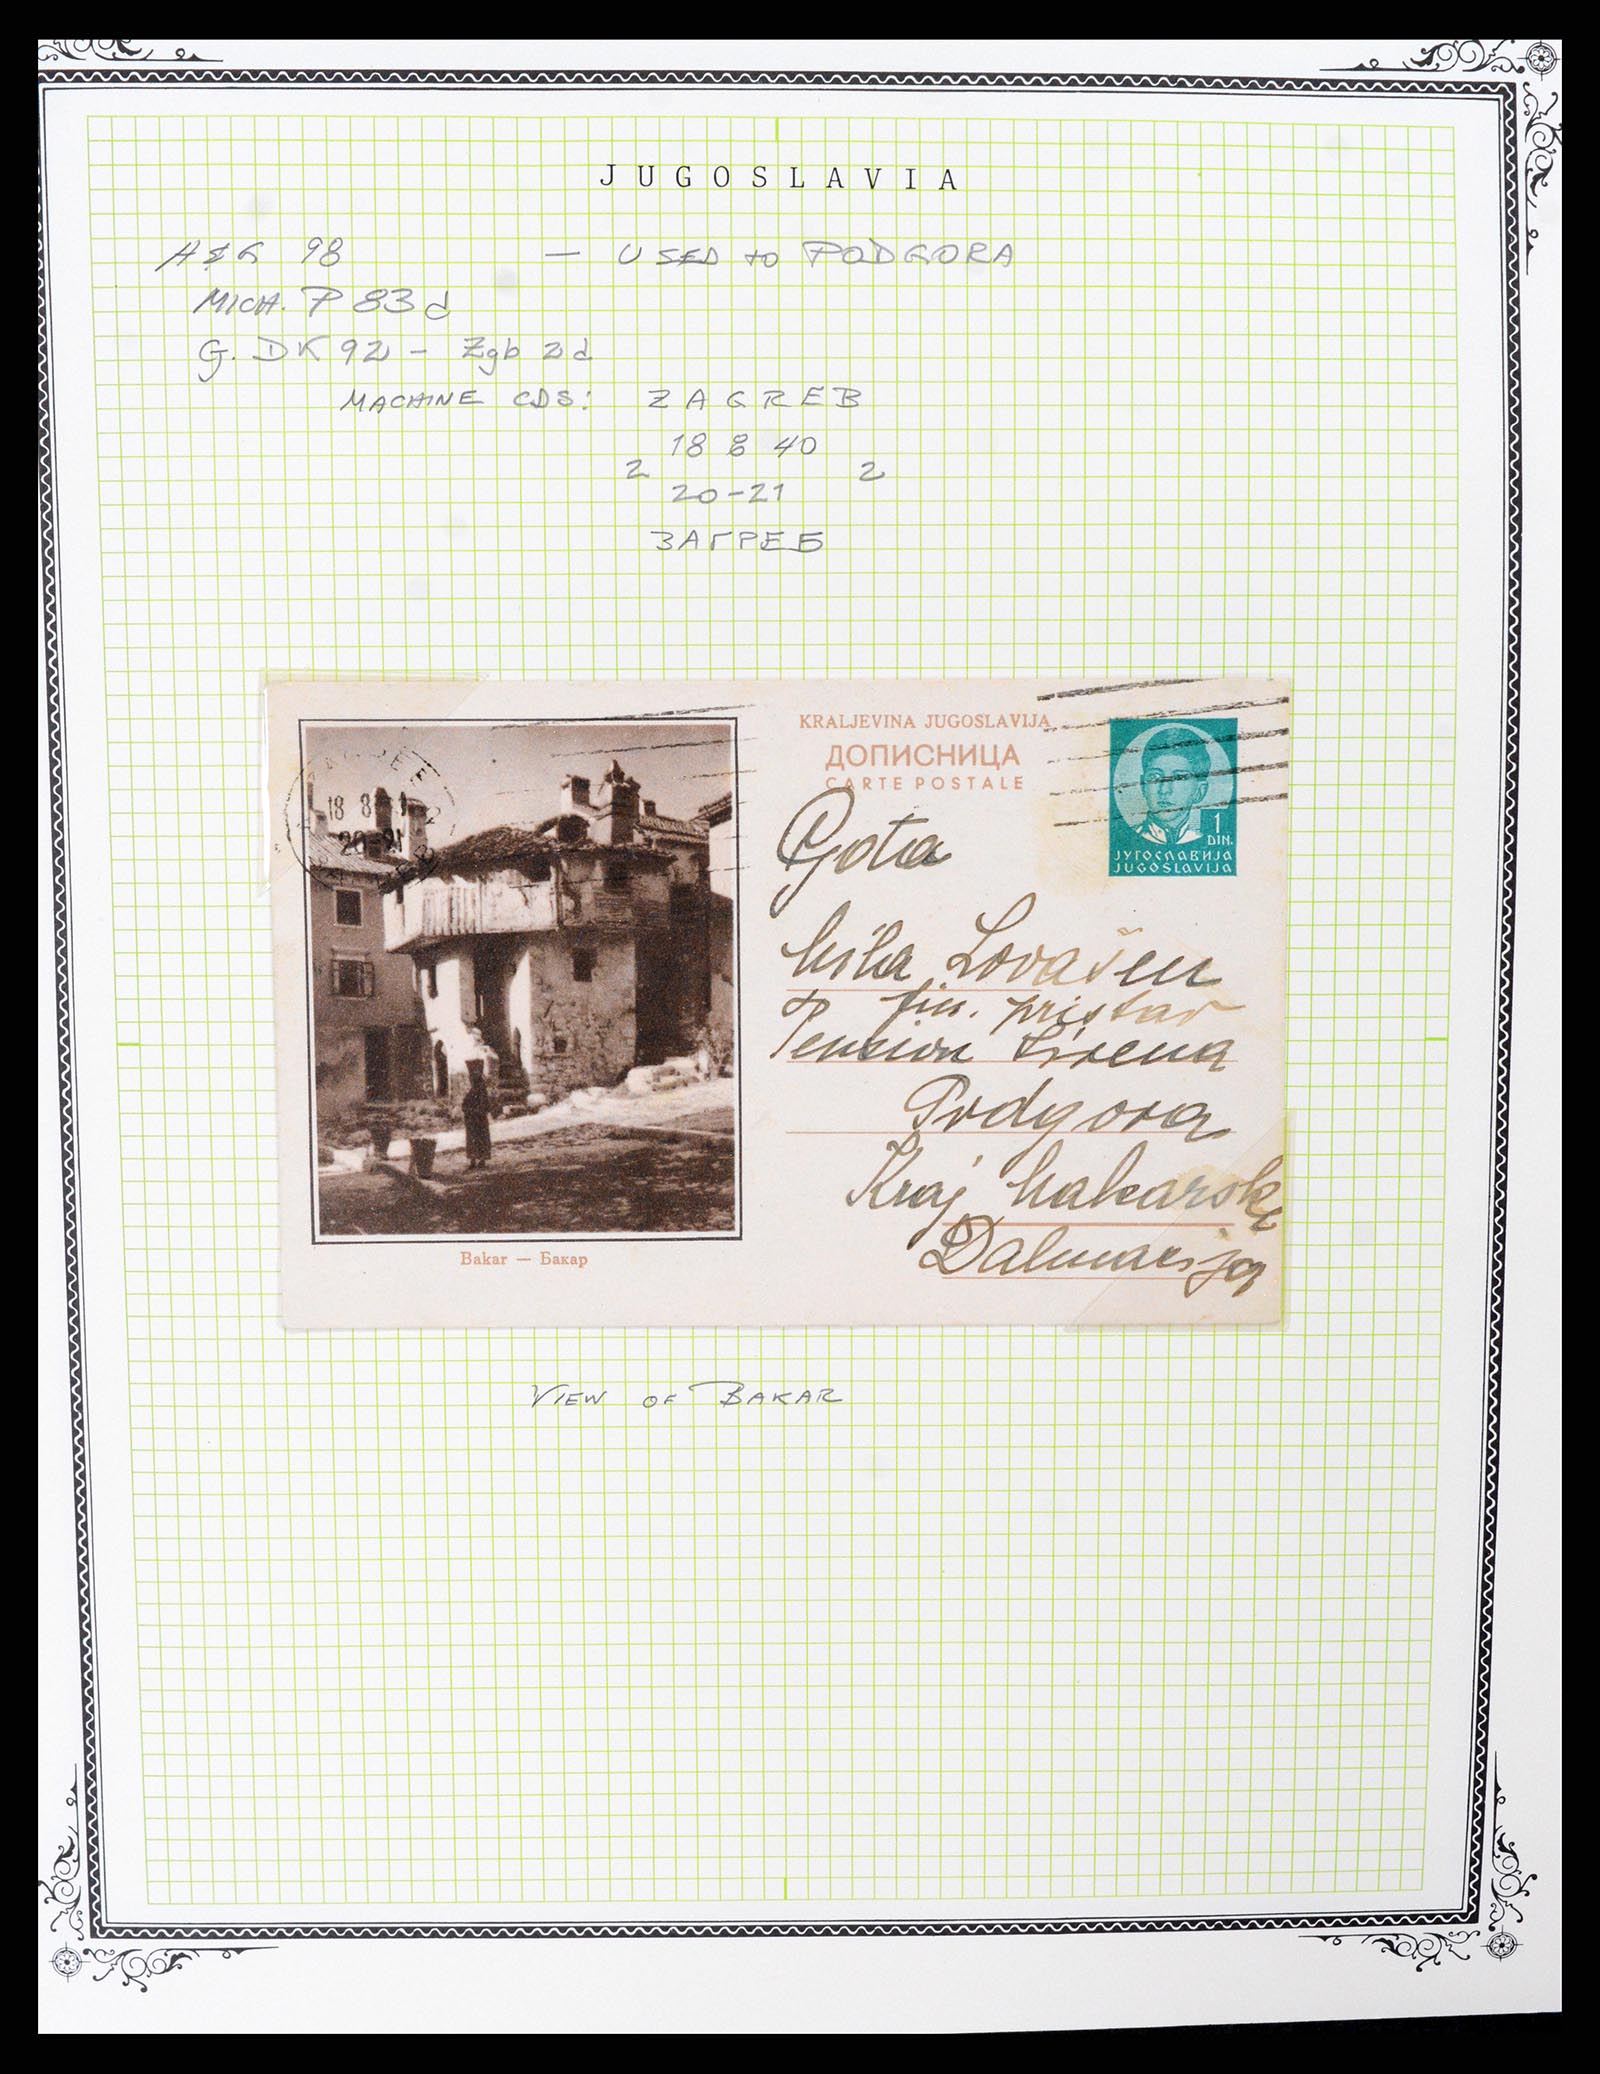 JUGOSLAVIA
H&G 98 — USED to PODGORA
MICH. P 83 d
G. DK 92 - Zgb 2d
MACHINE CDS: ZAGREB
18 8 40
2 2
20-21
ЗАГРЕБ
KRALJEVINA JUGOSLAVIJA
ДОПИСНИЦА
CARTE POSTALE
18 8
20-21
1
DIN.
ЈУГОСЛАВИЈА
JUGOSLAVIJA
Gđta
Mila Lovašen
fin. pristav
Pension Sirena
Podgora
Kraj Makarske
Dalmacija
Bakar — Бакар
VIEW OF BAKAR